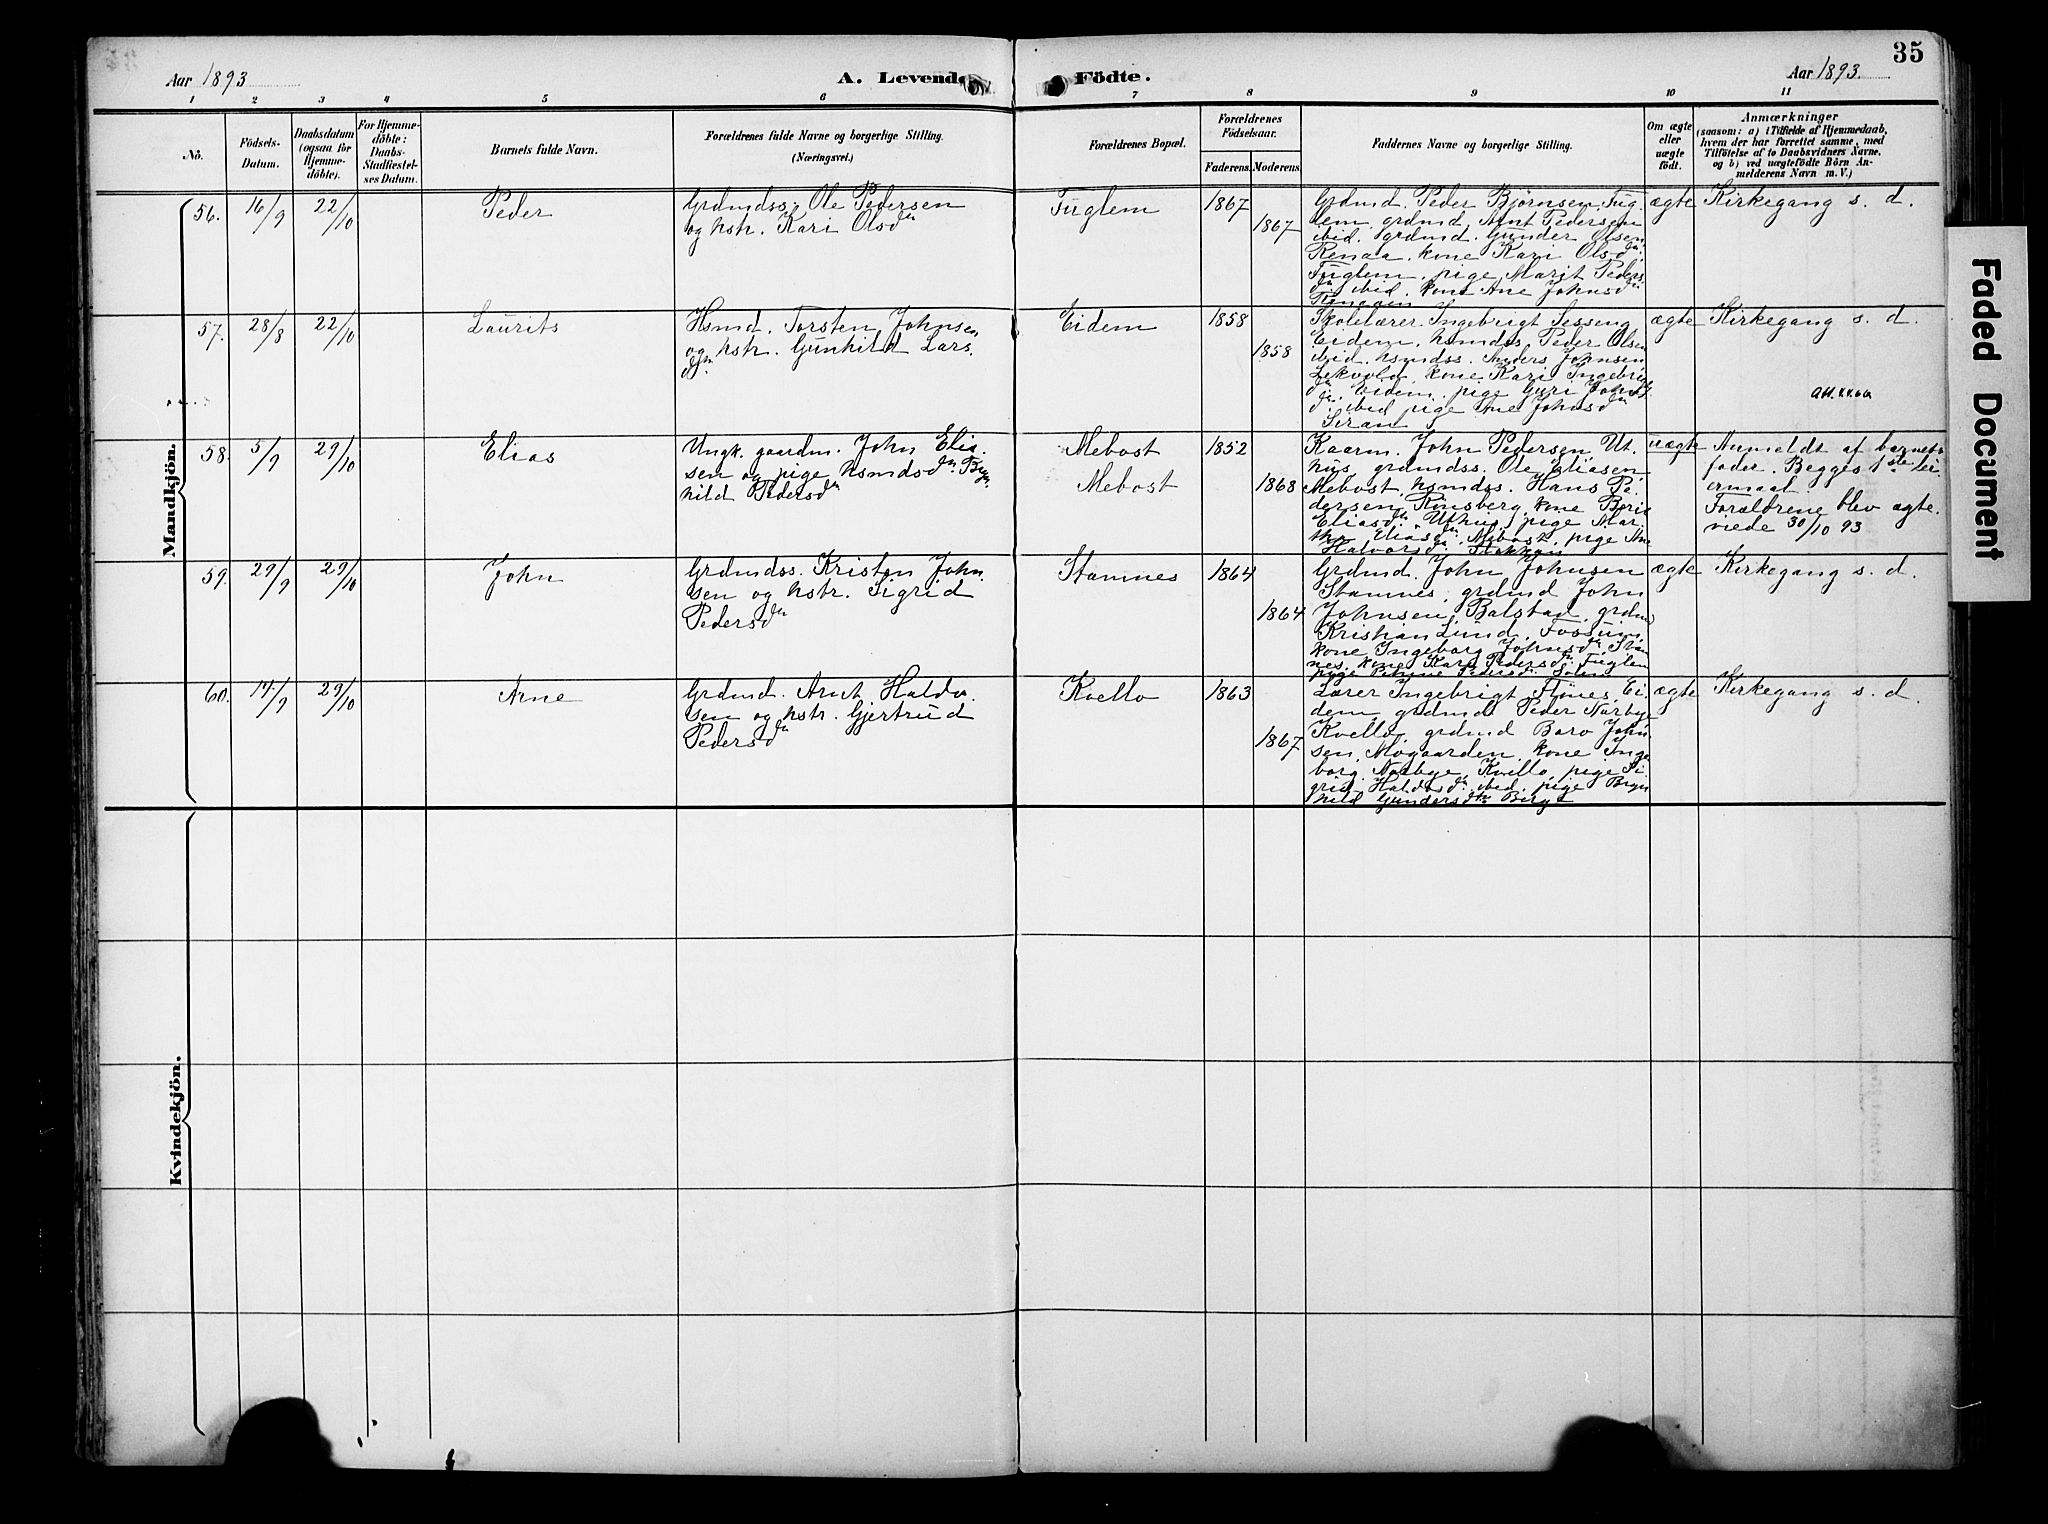 35
Aar 1893
A. Levende Födte.
Aar 1893.
1 2 3 4 5 6 7 8 9 10 11
Nò.
Födsels-
Datum.
Daabsdatum
(ogsaa for
Hjemme-
döbte).
For Hjemme-
döbte:
Daabs-
Stadfæstel-
ses Datum.
Barnets fulde Navn.
Forældrenes fulde Navne og borgerlige Stilling.
(Næringsvei.)
Forældrenes Bopæl.
Forældrenes
Födselsaar.
Faderens.
Moderens.
Faddernes Navne og borgerlige Stilling.
Om ægte
eller
uægte
födt.
Anmærkninger
(saasom: a) i Tilfælde af Hjemmedaab,
hvem der har forrettet samme, med
Tilföielse af to Daabsvidners Navne,
og b) ved uægtefödte Börn An-
melderens Navn m. V.)
Mandkjön.
56.
16/9
22/10
Peder
Grdmdss. Ole Pedersen
og hstr. Kari Olsdtr
Fuglem
1867
1867
Grdmd. Peder Bjørnsen, Fug-
lem, grdmd. Arnt Pedersen
ibid. grdmd. Gunder Olsen
Renaa, kone Kari Olsdtr
Fuglem, pige Marit Peders
dtr ibid. kone Ane Johnsdtr
ægte
Kirkegang s. d.
57.
28/8
22/10
Laurits
Hsmd. Torsten Johnsen
og hstr. Gunhild Lars
dtr.
Eidem
1858
1858
Skolelærer Ingebrigt Sesseng
Eidem, hsmdss. Peder Olsen
ibid. hsmdss. Anders Johnsen
Lekvold, kone Kari Ingebrigts
dtr. Eidem, pige Guri Johns
dtr ibid pige Ane Johnsdtr
Siran
ægte
Kirkegang s. d.
58.
5/9
29/10
Elias
Ungk. gaardm. John Elia-
sen og pige hsmdsdtr. Bryn-
hild Pedersdtr
Mebost
Mebost
1852
1868
Kaarm. John Pedersen Ut-
hus, grdmdss. Ole Eliasen
Mebost, hsmdss. Hans Pe-
dersen Rønsberg, kone Berit
Eliasdtr. Uthus, pige Mar-
tha Eliasdtr. Mebost, pige Ane
Halvorsdtr. Stokkan
uægte
Anmeldt af barnets
fader. Begges 1ste lei-
ermaal.
Forældrene blev ægte-
viede 30/10 93
59.
29/9
29/10
John
Grdmdss. Kristen John-
sen og hstr. Sigrid
Pedersdtr
Stamnes
1864
1864
Grdmd. John Johnsen
Stamnes, grdmd John
Johnsen Balstad, grdmd
Kristian Lund, Fossum,
kone Ingeborg Johnsdtr. Stam-
nes, kone Kari Pedersdtr. Fuglem
ægte
Kirkegang s. d.
60.
14/9
29/10
Arne
Grdmd. Arnt Haldo-
sen og hstr. Gjertrud
Pedersdtr
Kvello
1863
1867
Lærer Ingebrigt Flønes, Ei-
dem grdmd Peder Nørbye
Kvello, grdmd Baro John-
sen, Mogaarden, kone Inge-
borg Nørbye, Kvello, pige Si-
grid Haldosdtr. ibid. pige Bryn
hild Gundersdtr. Berge
ægte
Kirkegang s. d
Kvindekjön.
Faded Document